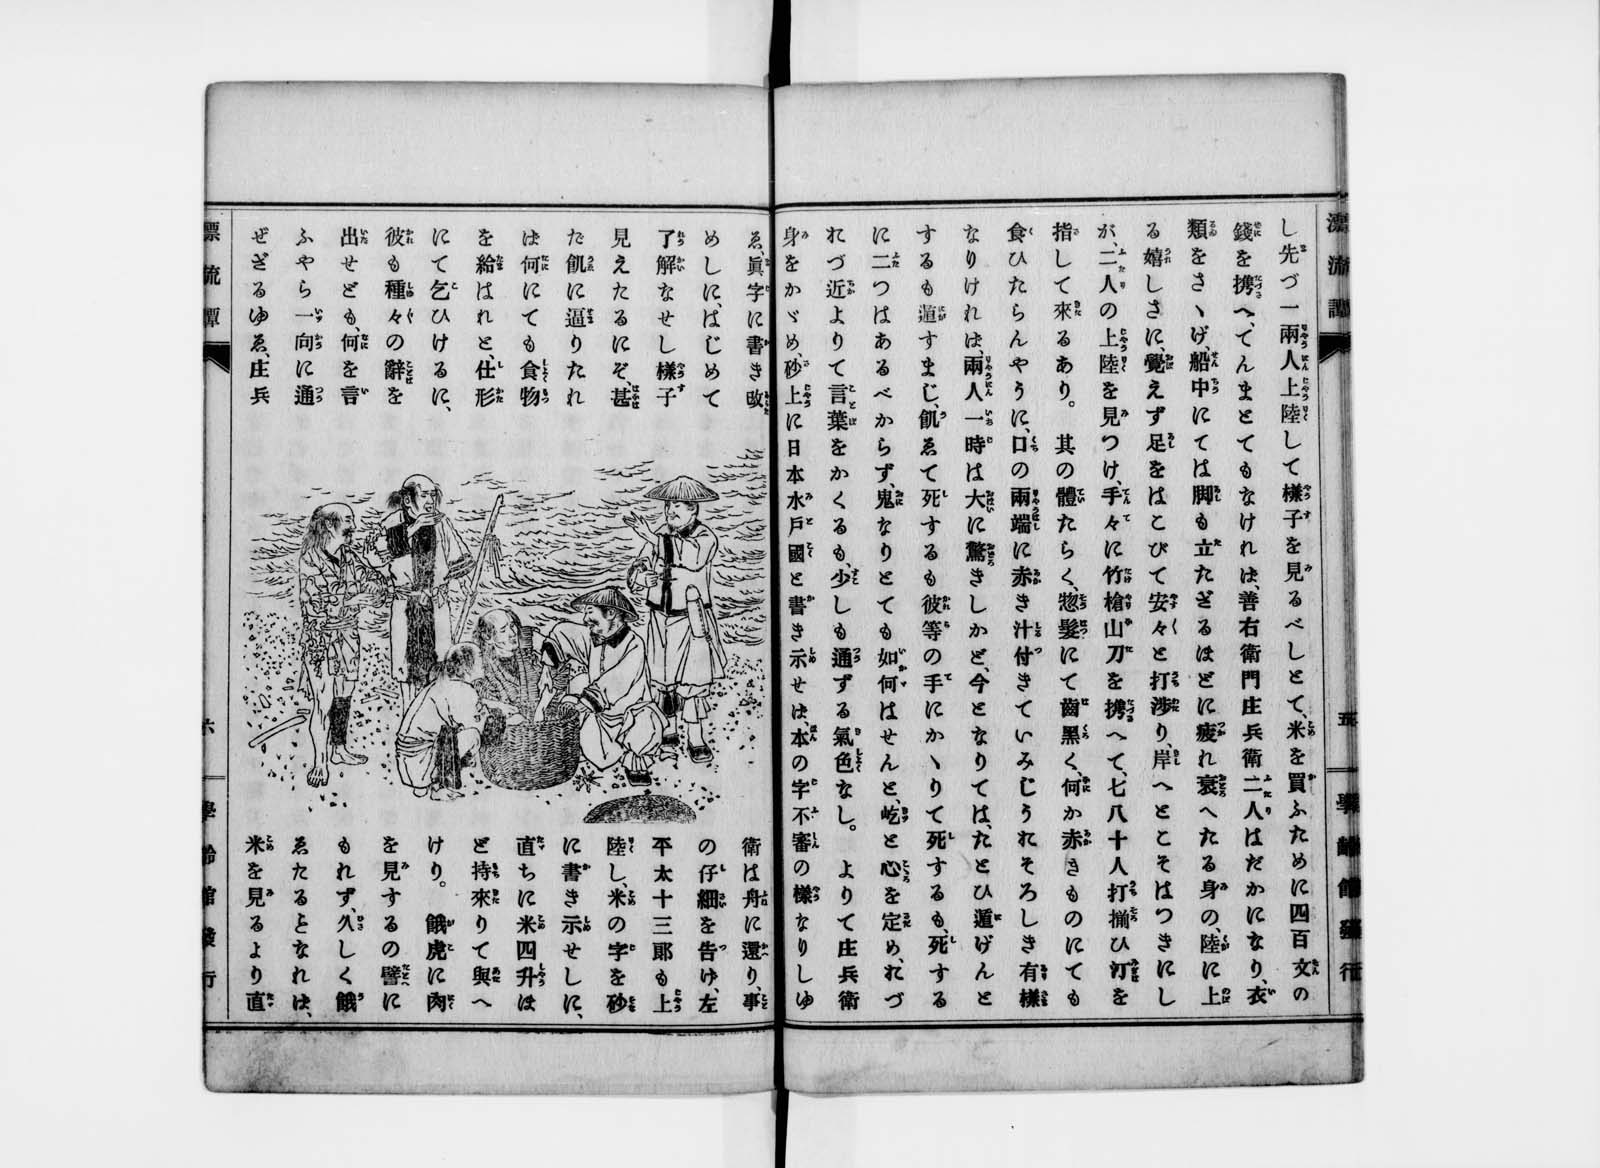 漂流譚
五
學齡館發行
し先づ一兩人上陸して樣子を見るべしとて、米を買ふために四百文の
錢を携へ、てんまとてもなけれは、善右衛門庄兵衛二人はだかになり、衣
類をさゝげ、船中にては脚も立たざるほどに疲れ衰へたる身の、陸に上
る嬉しさに、覺えず足をはこびて安々と打渉り、岸へとこそはつきにし
が、二人の上陸を見つけ、手々に竹槍山刀を携へて、七八十人打揃ひ汀を
指して來るあり。其の體たらく、惣髮にて齒黑く、何か赤きものにても
食ひたらんやうに、口の兩端に赤き汁付きていみじうれそろしき有樣
なりけれは、兩人一時は大に驚きしかど、今となりては、たとひ遁げんと
するも遁すまじ、飢ゑて死するも彼等の手にかゝりて死するも、死する
に二つはあるべからず、鬼なりとても如何はせんと、屹と心を定め、れづ
れづ近よりて言葉をかくるも、少しも通ずる氣色なし。よりて庄兵衛
身をかゞめ、砂上に日本水戸國と書き示せは、本の字不審の樣なりしゆ
ゑ眞字に書き改
めしに、はじめて
了解なせし樣子
見えたるにぞ、甚
た飢に逼りたれ
は何にても食物
を給はれと、仕形
にて乞ひけるに、
彼も種々の辭を
出せども、何を言
ふやら一向に通
ぜざるゆゑ、庄兵
衛は舟に還り、事
の仔細を告げ、左
平太十三郎も上
陸し、米の字を砂
に書き示せしに、
直ちに米四升ほ
ど持來りて與へ
けり。餓虎に肉
を見するの譬に
もれず、久しく餓
ゑたるとなれは、
米を見るより直
漂流譚
六
學齡館發行